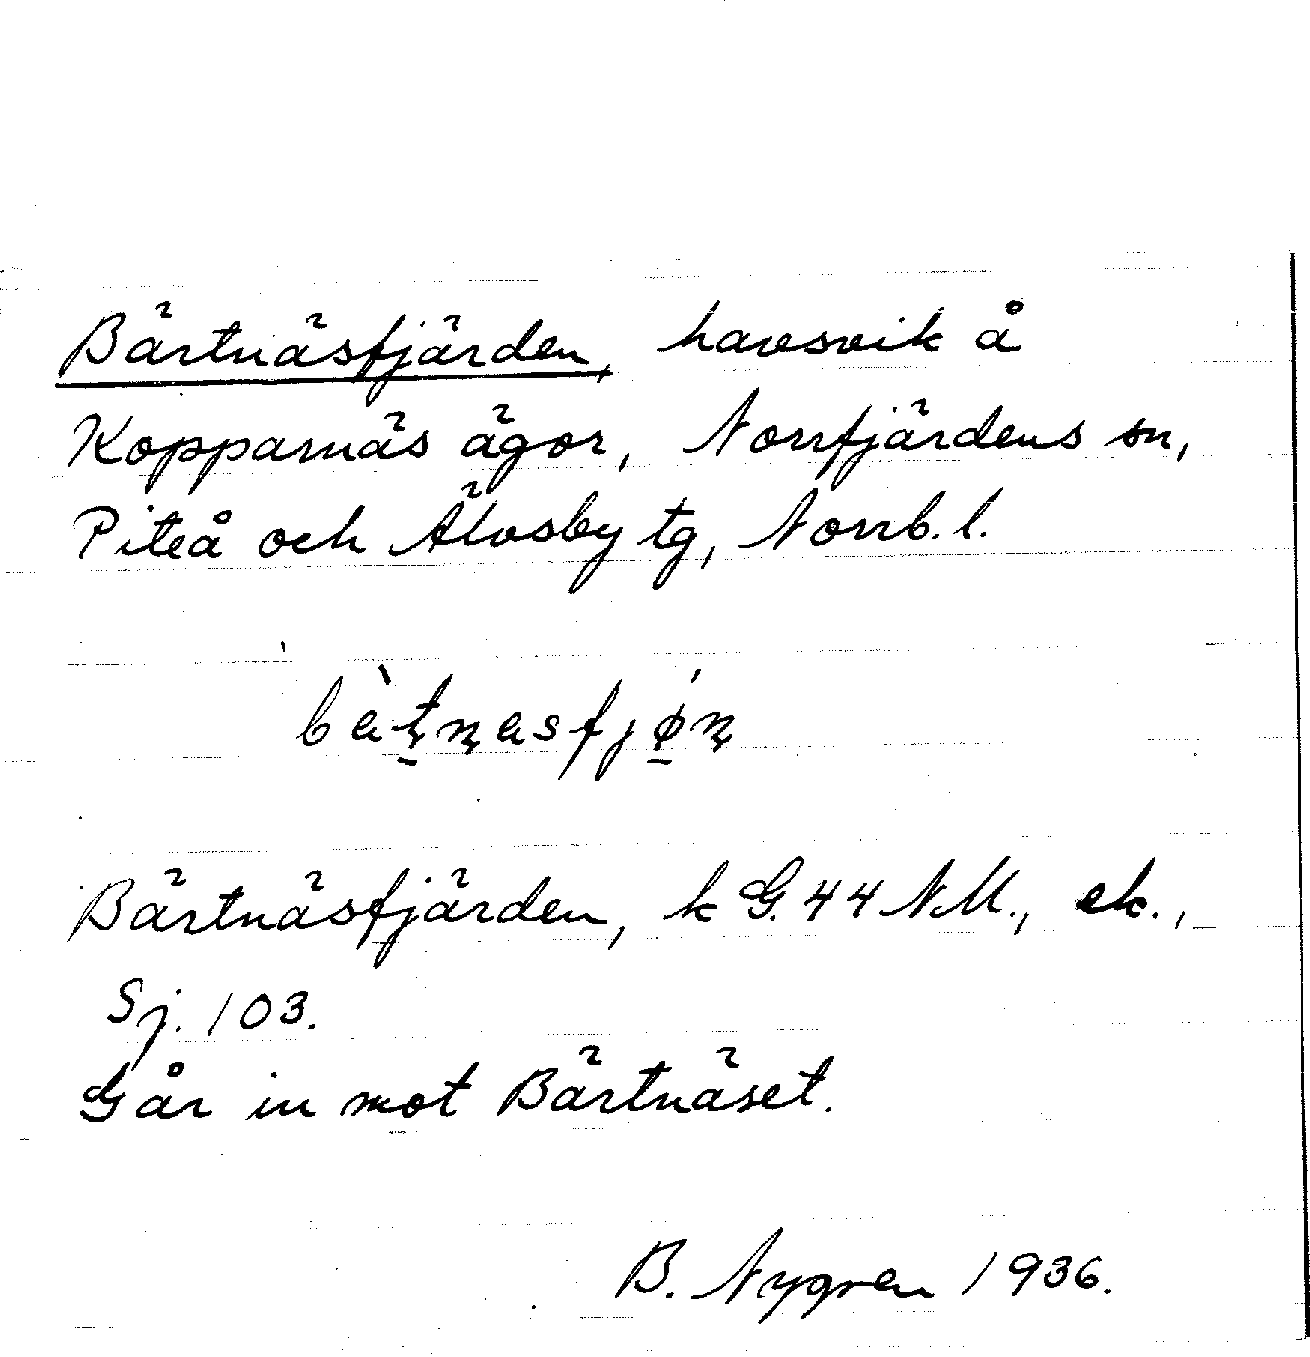 Bärtnäsfjärden, havsvik å
Kopparnäs ägor, Norrfjärdens sn,
Piteå och Älvsby tg, Norrb. l.
bàṭṇasfjǿṇ
Bärtnäsfjärden, k G. 44 NM., ek.,
Sj. 103.
Går in mot Bärtnäset.
B. Nygren 1936.